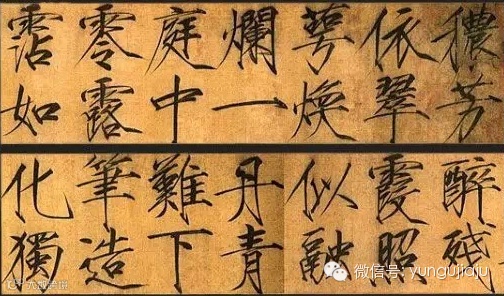 穠芳
依翠
萼煥
爛一
庭中
零露
霑如
醉殘
霞照
似融
丹青
難下
筆造
化獨
微信号: yungujiaju